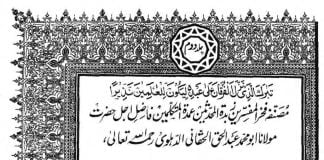 جلد دوم
تبرك الذی نزل الفرقان علی عبده لیکون للعلمین نذیرا
مصنفہ فخر المفسرین زبدة المحدثین عمدة المتکلمین فاضل اجل حضرت
مولانا ابو محمد عبد الحق الحقانی الدہلوی رحمۃ اللہ تعالیٰ